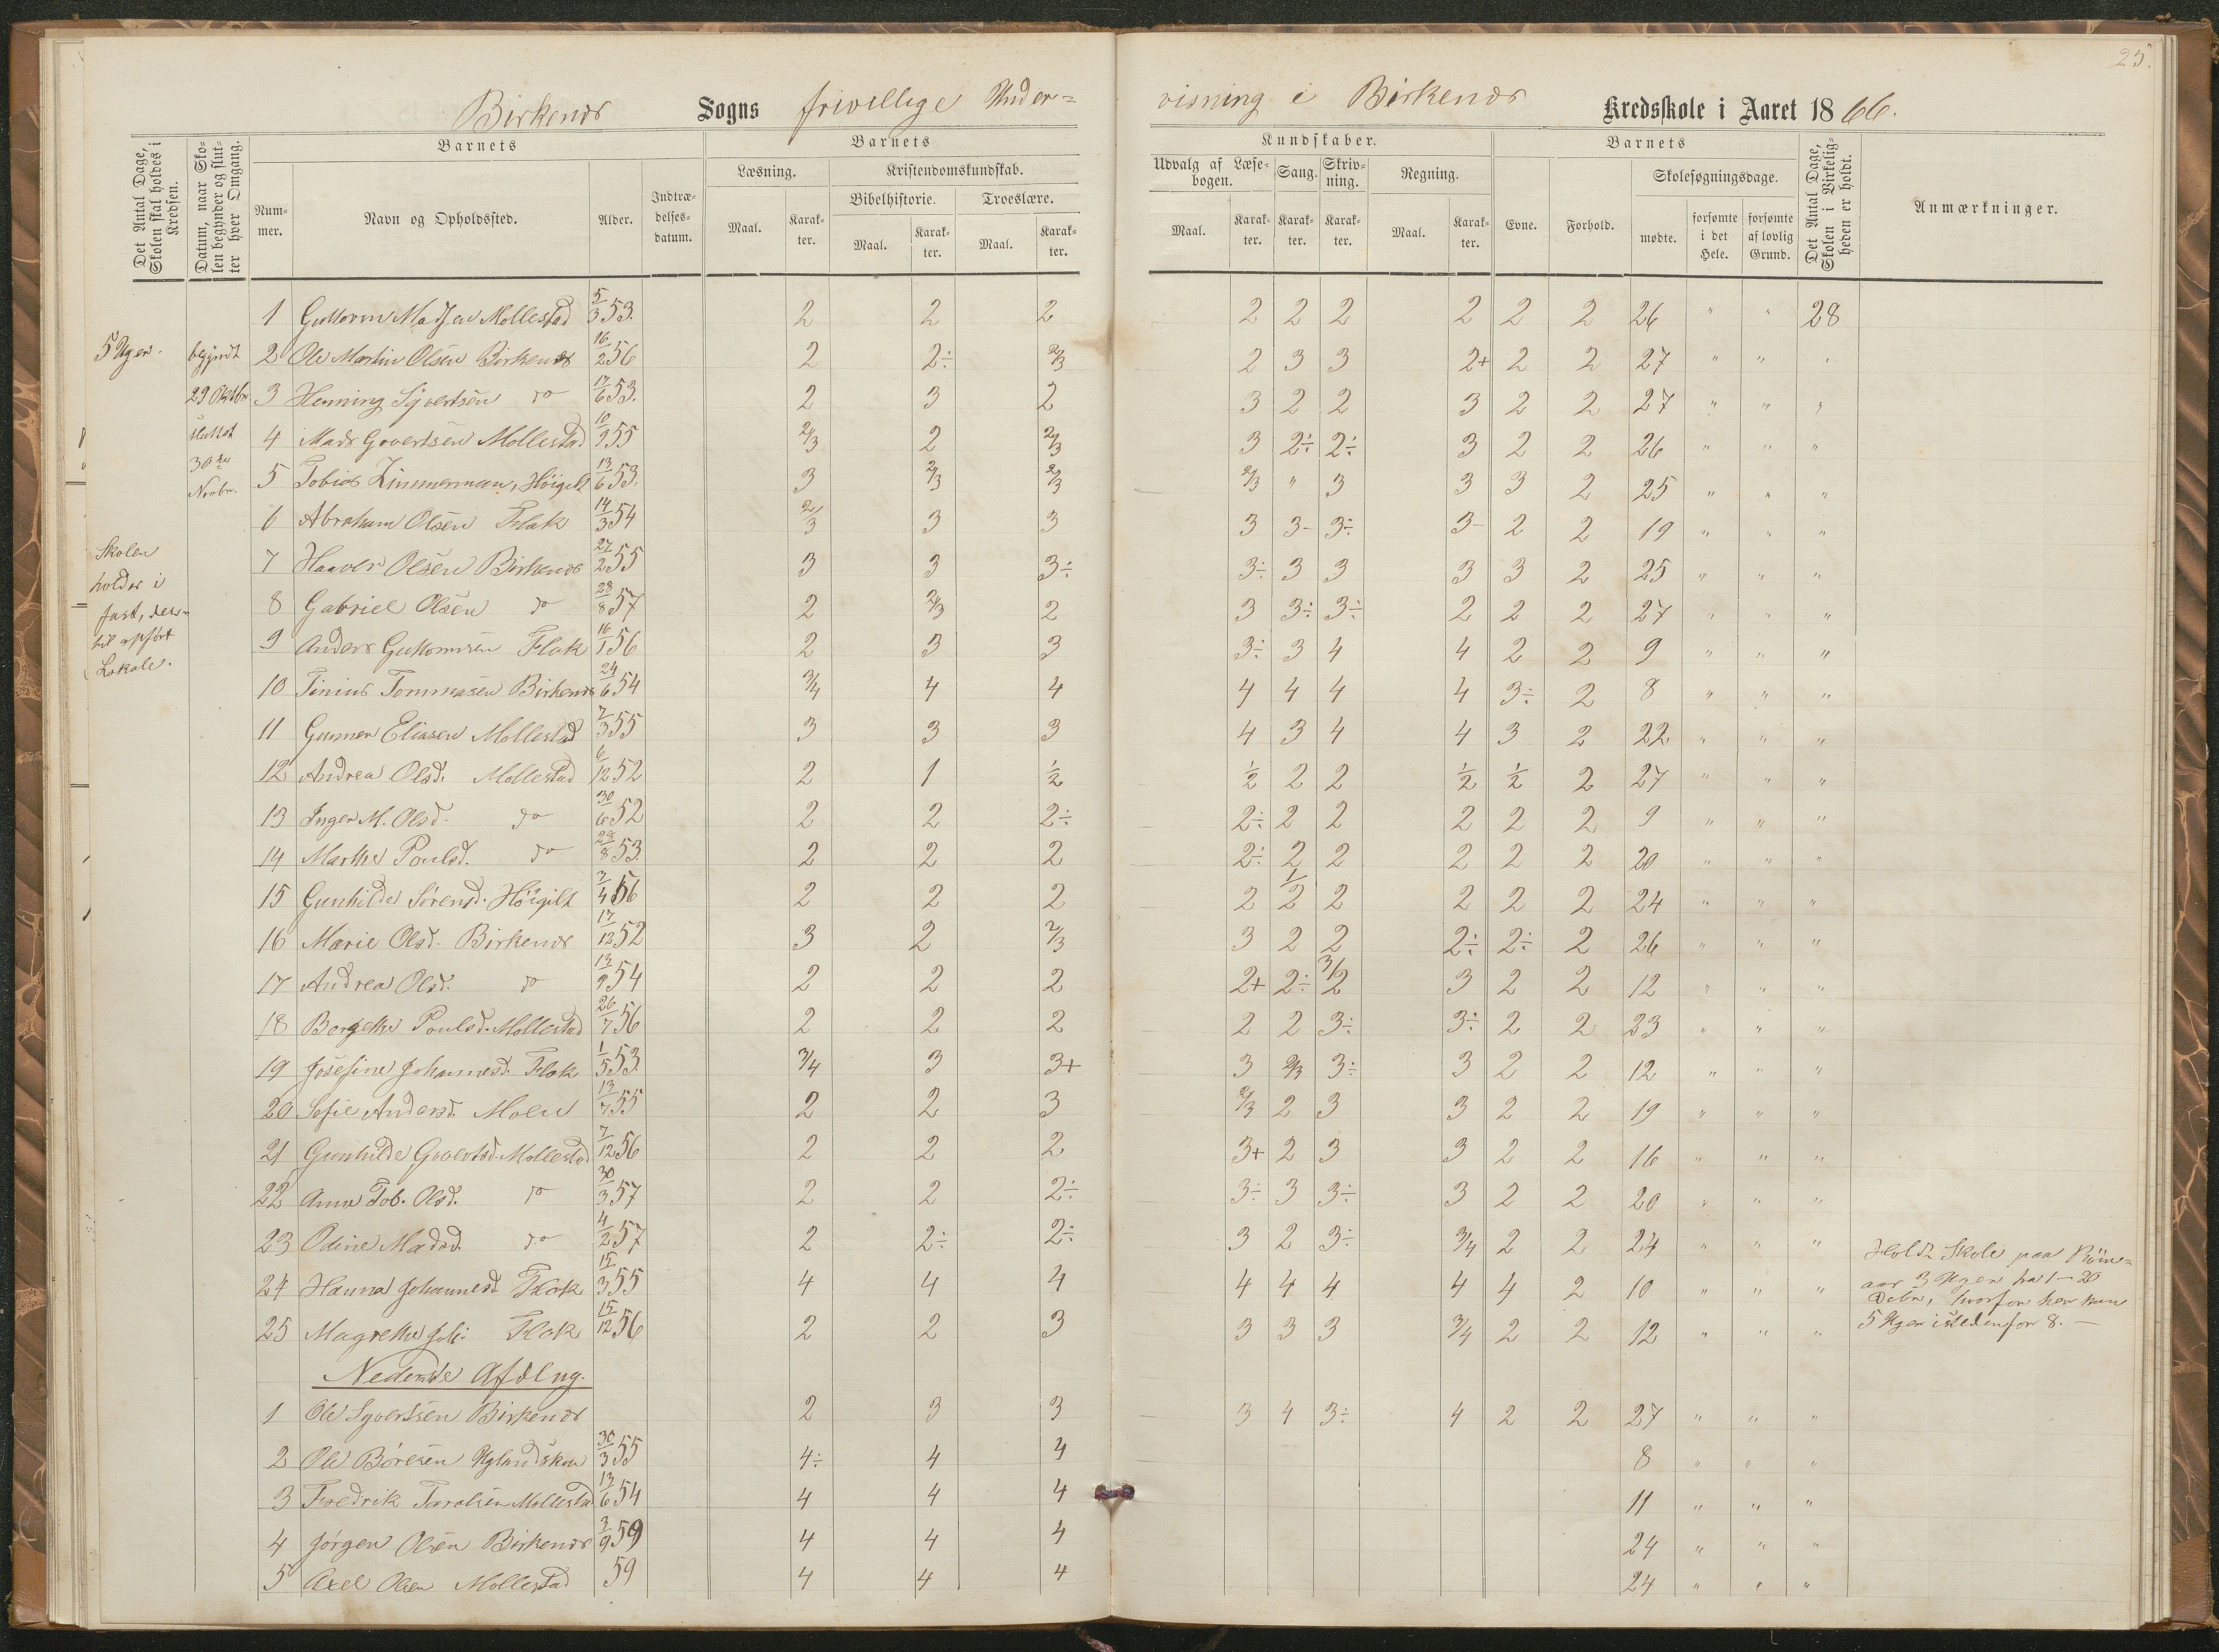 25.
Birkenes Sogns frivillige Under=
visning i Birkenes Kredsskole i Aaret 1866.
Det Antal Dage, Skolen skal holdes i Kredsen.
Datum, naar Skolen begynder og slutter hver Omgang.
Barnets
Nummer.
Navn og Opholdssted.
Alder.
Indtrædelsesdatum.
Barnets
Læsning.
Maal.
Karakter.
Kristendomskundskab.
Bibelhistorie.
Maal.
Karakter.
Troeslære.
Maal.
Karakter.
Kundskaber.
Udvalg af Læsebogen.
Maal.
Karakter.
Sang.
Karakter.
Skrivning.
Karakter.
Regning.
Maal.
Karakter.
Barnets
Evne.
Forhold.
Skolesøgningsdage.
mødte.
forsømte i det Hele.
forsømte af lovlig Grund.
Det Antal Dage, Skolen i Virkeligheden er holdt.
Anmærkninger.
5 Uger.
begyndt
29 Oktbr
sluttet
30te
Novbr.
Skolen
holdes i
fast, der=
til opført
Lokale.
1 Guttorm Madsen Mollestad 5/3 53. 2 2 2 2 2 2 2 2 2 26 " " 28
2 Ole Martin Olsen Birkenes 16/2 56 2 2÷ 2/3 2 3 3 2+ 2 2 27 " " "
3 Henning Syvertsen do 17/6 53. 2 3 2 3 2 2 3 2 2 27 " " "
4 Mads Govertsen Mollestad 10/9 55 2/3 2 2/3 3 2÷ 2÷ 3 2 2 26 " " "
5 Tobias Zimmerman, Höigilt 13/6 53. 3 2/3 2/3 2/3 " 3 3 3 2 25 " " "
6 Abraham Olsen Flak 14/3 54 2/3 3 3 3 3- 3÷ 3- 2 2 19 " " "
7 Haaver Olsen Birkenes 27/2 55 3 3 3÷ 3÷ 3 3 3 3 2 25 " " "
8 Gabriel Olsen do 28/8 57 2 2/3 2 3 3÷ 3÷ 2 2 2 27 " " "
9 Anders Guttormsen Flak 16/1 56 2 3 3 3÷ 3 4 4 2 2 9 " " "
10 Tinius Tommasen Birkenes 24/6 54 3/4 4 4 4 4 4 4 3÷ 2 8 " " "
11 Gunner Eliasen Mollestad 7/3 55 3 3 3 4 3 4 4 3 2 22 " " "
12 Andrea Olsd. Mollestad 6/12 52 2 1 1/2 1/2 2 2 1/2 1/2 2 27 " " "
13 Inger M. Olsd. do 30/6 52 2 2 2÷ 2÷ 2 2 2 2 2 9 " " "
14 Marthe Poulsd. do 28/8 53. 2 2 2 2÷ 2 2 2 2 2 20 " " "
15 Gunhilde Sörensd. Höigilt 7/4 56 2 2 2 2 1/2 2 2 2 2 24 " " "
16 Marie Olsd. Birkenes 17/12 52 3 2 2/3 3 2 2 2÷ 2÷ 2 26 " " "
17 Andrea Olsd. do 13/9 54 2 2 2 2+ 2÷ 3/2 3 2 2 12 " " "
18 Borgethe Poulsd. Mollestad 26/7 56 2 2 2 2 2 3÷ 3÷ 2 2 23 " " "
19 Josefine Johannesd. Flak 1/5 53. 3/4 3 3+ 3 2/3 3÷ 3 2 2 12 " " "
20 Sofie Andersd. Moen 13/7 55 2 2 3 2/3 2 3 3 2 2 19 " " "
21 Gunhilde Govertsd. Mollestad 7/12 56 2 2 2 3+ 2 3 3 2 2 16 " " "
22 Anne Tob. Olsd. do 30/3 57 2 2 2÷ 3÷ 3 3÷ 3 2 2 20 " " "
23 Odine Madsd. do 4/2 57 2 2÷ 2÷ 3 2 3÷ 3/4 2 2 24 " " "
24 Hanna Johannesd. Flak 15/3 55 4 4 4 4 4 4 4 4 2 10 " " "
25 Magrethe Joh. Flak 15/12 56 2 2 3 3 3 3 3/4 2 2 12 " " "
Holdt Skole paa
aar 3 Uger fra 1–20
Debr, hvorfor her kun
5 Uger istedenfor 8. –
Nederste Afdlng.
1 Ole Syvertsen Birkenes 2 3 3 3 4 3÷ 4 2 2 27 " " "
2 Ole Böresen 30/3 55 4÷ 4 4 8 " " "
3 Fredrik Taralsen Mollestad 13/6 54 4 4 4 11 " " "
4 Jörgen Olsen Birkenes 3/9 59 4 4 4 24 " " "
5 Axel Olsen Mollestad 59 4 4 4 24 " " "